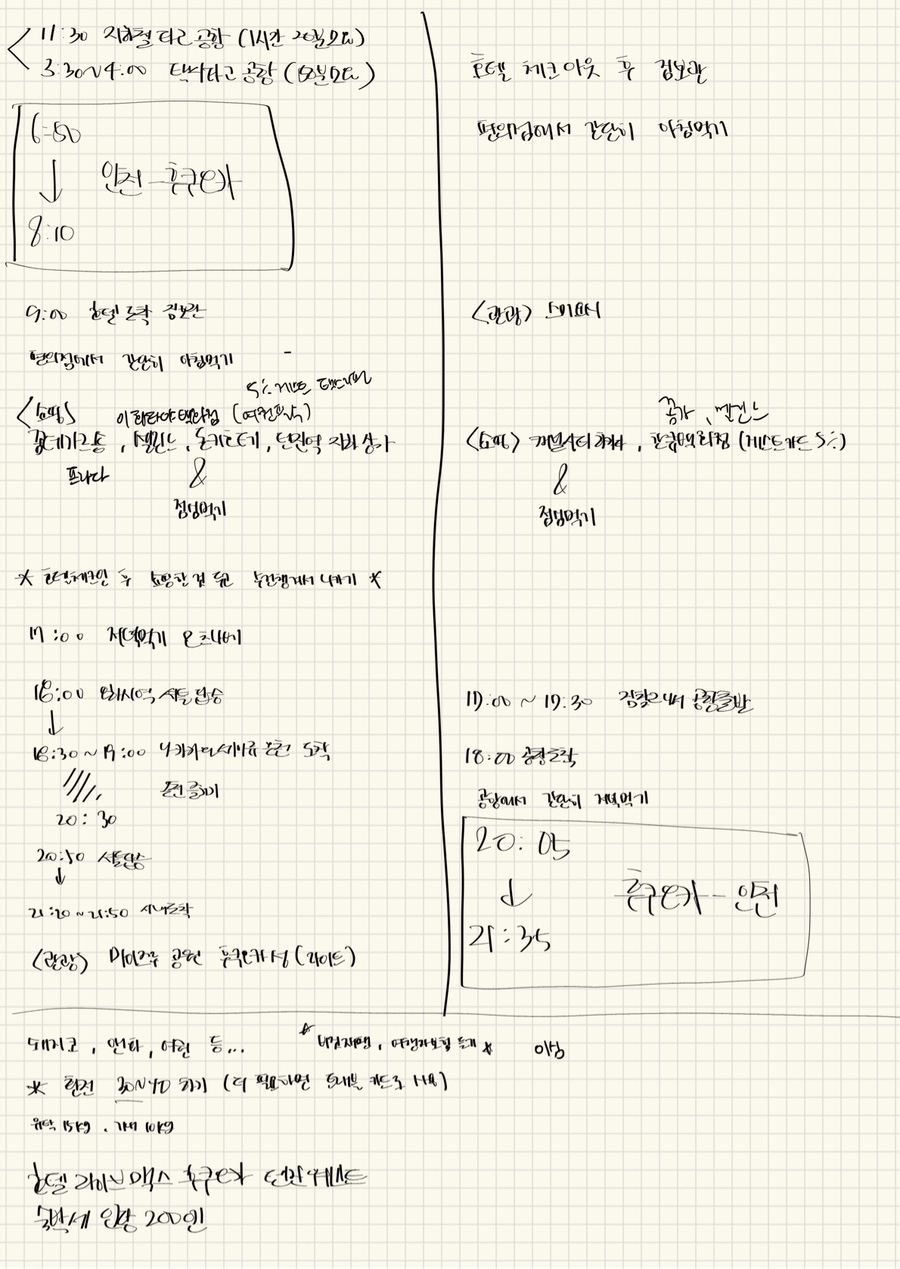 11:30 지하철 타고 공항 (1시간 20분 소요)
3:30~4:00 택시타고 공항 (50분소요)
6:50
↓ 인천 - 후쿠오카
8:10
9:00 호텔 도착 짐보관
편의점에서 간단히 아침먹기
5% 게스트
<쇼핑> 이와타야 백화점 (여권필수)
꼼데가르송, 셀린느, 돈키호테, 텐진역 지하상가
프라다 &
점심먹기
* 호텔체크인 후 쇼핑한 짐 두고 나가기 *
17:00 저녁먹기 모츠나베
18:00 셔틀탑승
↓
18:30~19:00 나카가와세이류 온천 도착
온천 즐기기
20:30
20:50 셔틀탑승
↓
21:20~21:50 시내도착
<관광> 마이즈루 공원 후쿠오카성 (라이트)
호텔 체크아웃 후 짐보관
편의점에서 간단히 아침먹기
<관광> 스미요시
꼼가, 셀린느
<쇼핑> 캐널시티 하카타, 한큐백화점 (게스트카드 5%)
&
점심먹기
17:00 ~ 17:30 짐찾으면서 공항출발
18:00 공항도착
공항에서 간단히 저녁먹기
20:05
↓ 후쿠오카 - 인천
21:35
돼지코, 엔화, 여권 등... * 비짓재팬, 여행자보험 등록 *
* 환전 30~40 하기 (더 필요하면 트래블 카드로 사용)
위탁 15kg, 기내 10kg
호텔 라이브 맥스 후쿠오카 텐진 웨스트
숙박세 인당 200엔